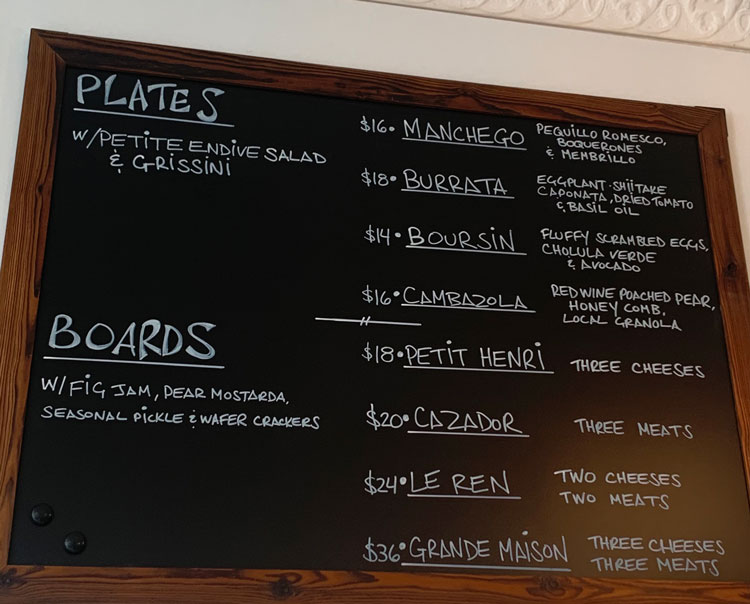 PLATES
W/PETITE ENDIVE SALAD
& GRISSINI
$16• MANCHEGO PEQUILLO ROMESCO,
BOQUERONES
& MEMBRILLO
$18• BURRATA EGGPLANT-SHIITAKE
CAPONATA, DRIED TOMATO
& BASIL OIL
$14• BOURSIN FLUFFY SCRAMBLED EGGS,
CHOLULA VERDE
& AVOCADO
$16• CAMBAZOLA RED WINE POACHED PEAR,
HONEY COMB,
LOCAL GRANOLA
BOARDS
W/FIG JAM, PEAR MOSTARDA,
SEASONAL PICKLE & WAFER CRACKERS
$18• PETIT HENRI THREE CHEESES
$20• CAZADOR THREE MEATS
$24• LE REN TWO CHEESES
TWO MEATS
$36• GRANDE MAISON THREE CHEESES
THREE MEATS